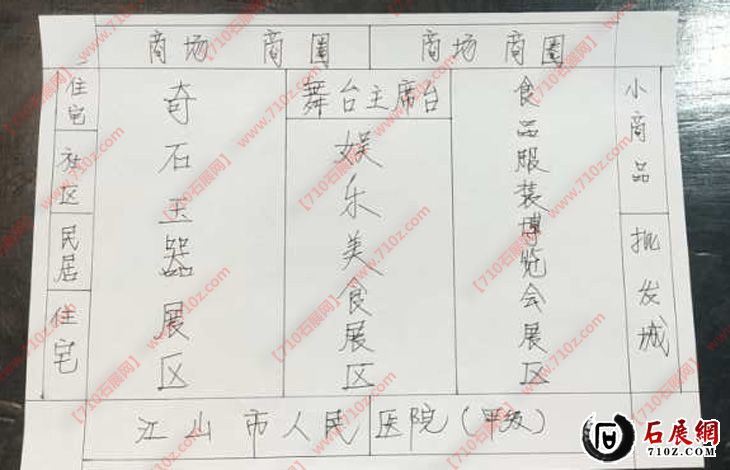 商场 商圈 商场 商圈
住宅
社区
民居
住宅
奇石玉器展区
舞台主席台
娱乐美食展区
食品服装博览会展区
小商品
批发城
江山市人民医院(甲级)
【710石展网】www.710z.com
石展網
710Z.COM